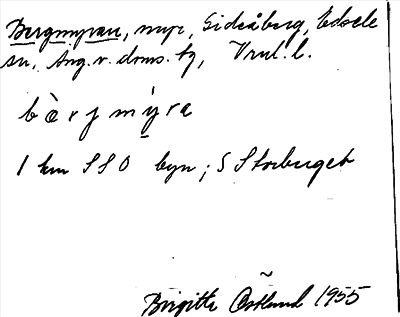 Bergmyran, myr, Gideåberg, Edsele
sn, Ång. v. doms. tg, Vnrl. l.
bæ̀rjmýra
1 km SSO byn; S Storberget
Birgitta Östlund 1955